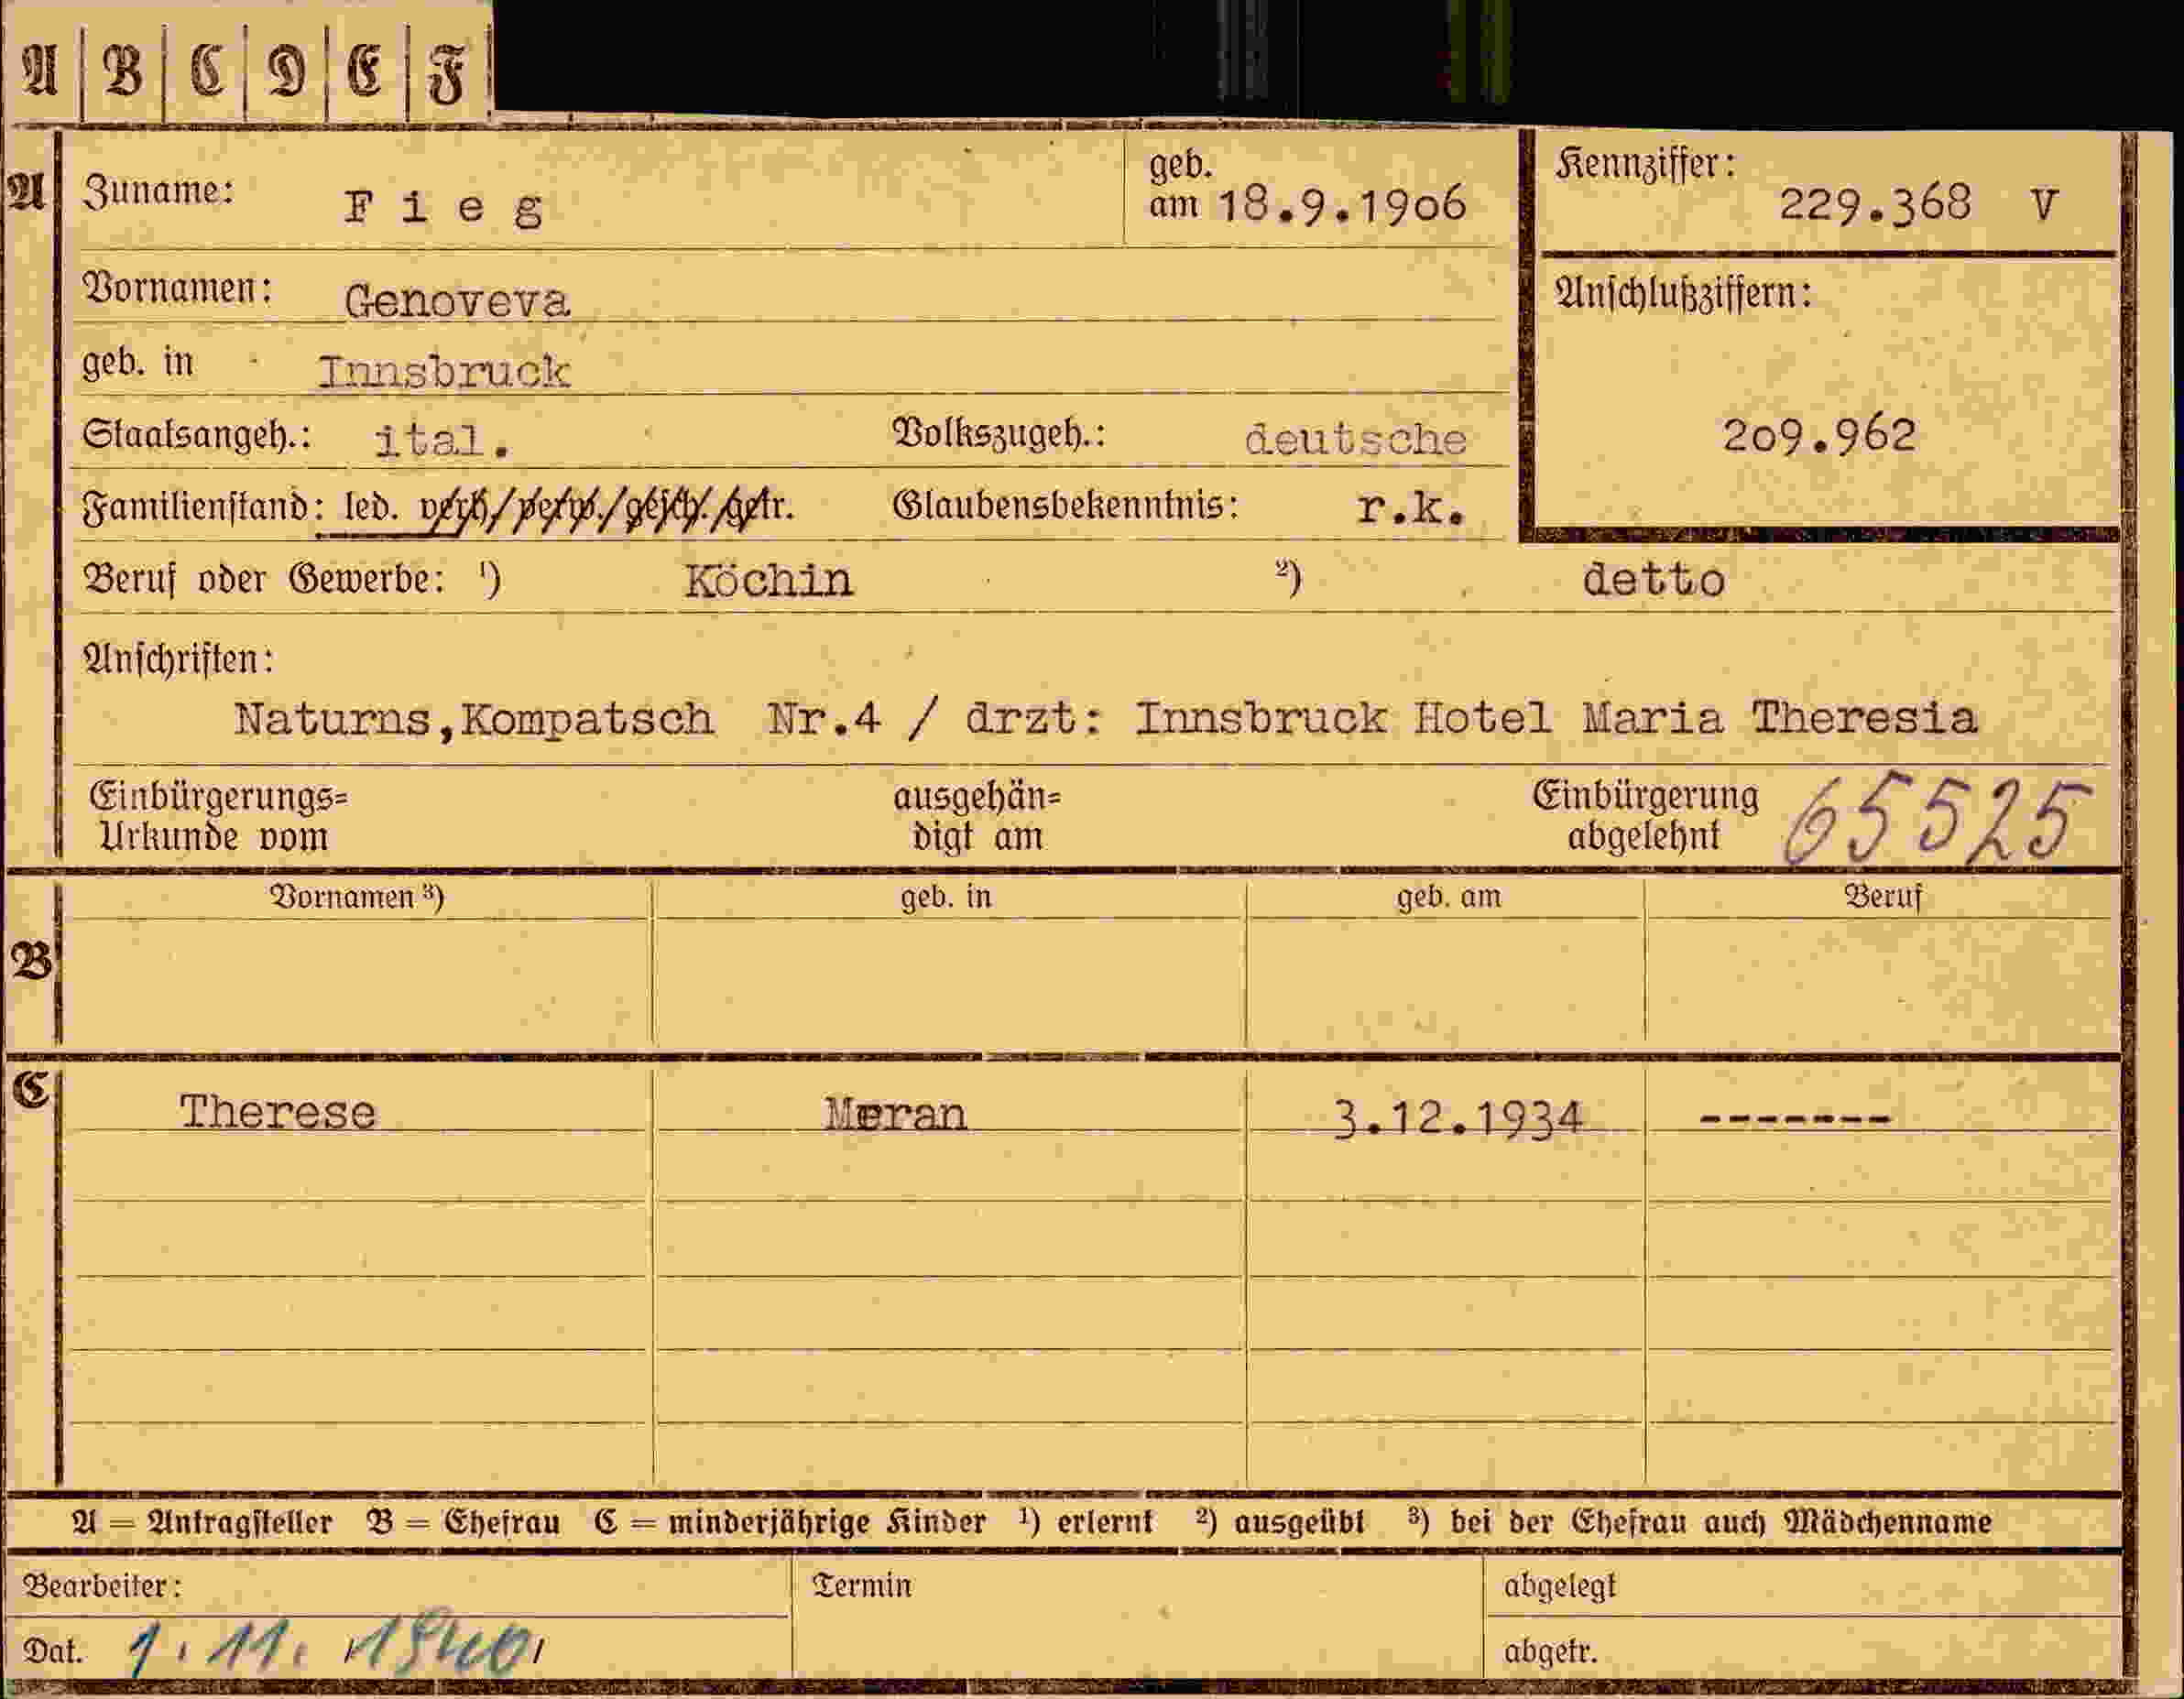 A B C D E F
A Zuname: Fieg geb. am 18.9.1906 Kennziffer: 229.368 V
Vornamen: Genoveva Anschlußziffern:
geb. in Innsbruck
Staatsangeh.: ital. Volkszugeh.: deutsche 209.962
Familienstand: led. verh/verw./gesch./getr. Glaubensbekenntnis: r.k.
Beruf oder Gewerbe: ¹) Köchin ²) detto
Anschriften:
Naturns,Kompatsch Nr.4 / drzt: Innsbruck Hotel Maria Theresia
Einbürgerungs= ausgehän= Einbürgerung 65525
Urkunde vom digt am abgelehnt
Vornamen ³) geb. in geb. am Beruf
B
C Therese Meran 3.12.1934 -------
A = Antragsteller B = Ehefrau C = minderjährige Kinder ¹) erlernt ²) ausgeübt ³) bei der Ehefrau auch Mädchenname
Bearbeiter: Termin abgelegt
Dat. 1.11.1940 abgetr.